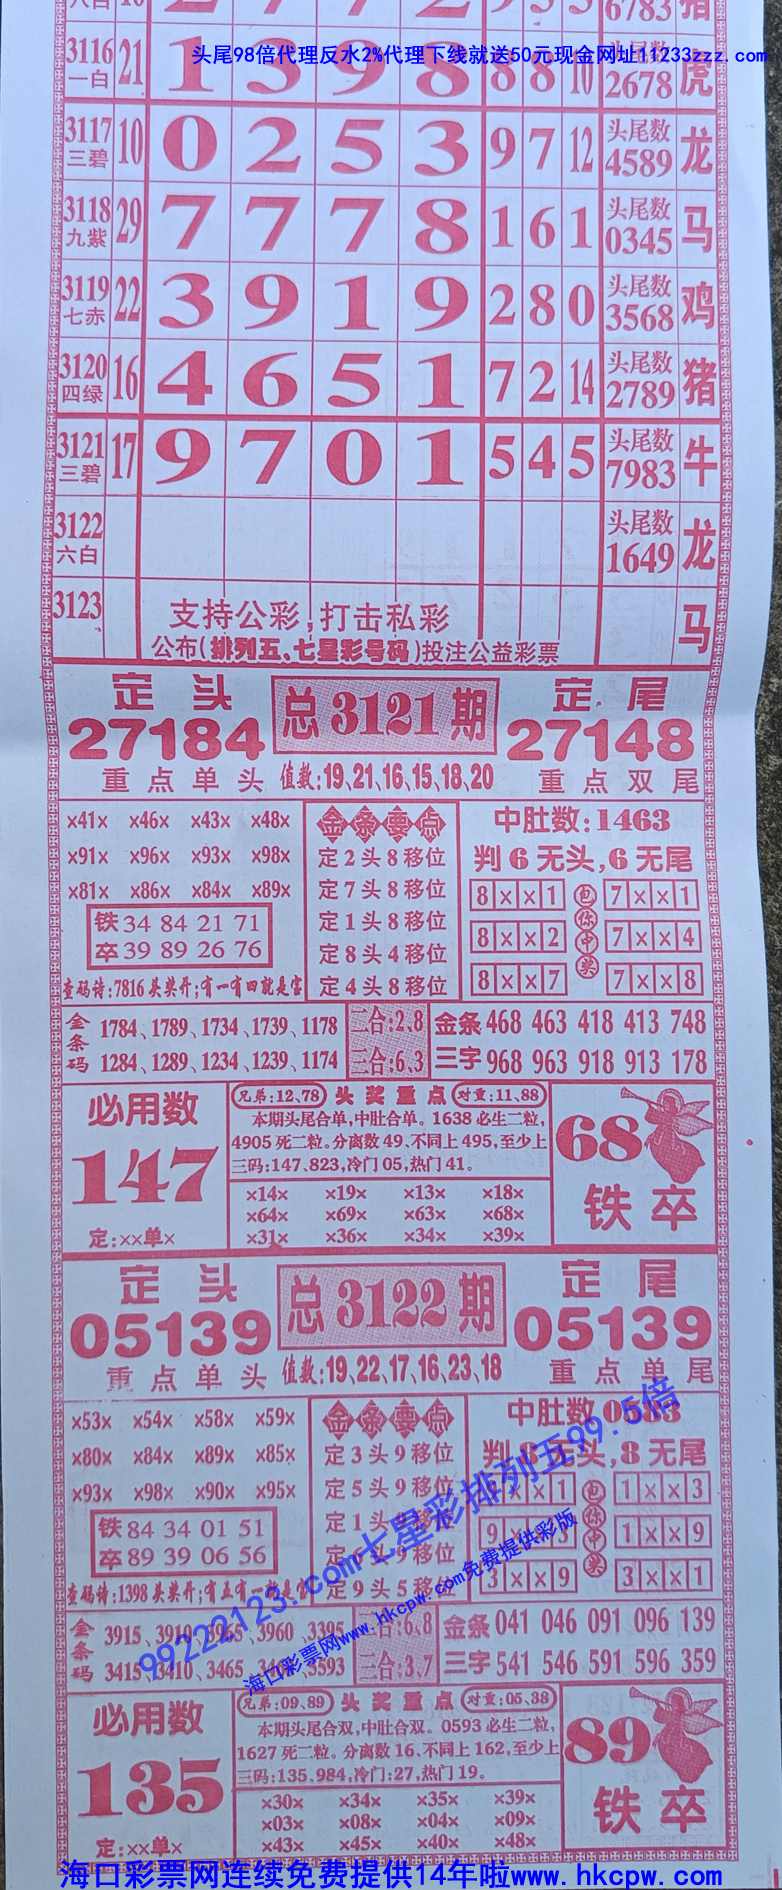 六白
2 7 7 2 9 5 5 6783 猪
头尾98倍代理反水2%代理下线就送50元现金网址11233zzz.com
3116 一白 21 1 3 9 8 8 8 10 头尾数 2678 虎
3117 三碧 10 0 2 5 3 9 7 12 头尾数 4589 龙
3118 九紫 29 7 7 7 8 1 6 1 头尾数 0345 马
3119 七赤 22 3 9 1 9 2 8 0 头尾数 3568 鸡
3120 四绿 16 4 6 5 1 7 2 14 头尾数 2789 猪
3121 三碧 17 9 7 0 1 5 4 5 头尾数 7983 牛
3122 六白 头尾数 1649 龙
3123 马
支持公彩,打击私彩
公布(排列五、七星彩号码)投注公益彩票
定头 总3121期 定尾
27184 27148
重点单头 值数:19、21、16、15、18、20 重点双尾
×41× ×46× ×43× ×48×
×91× ×96× ×93× ×98×
×81× ×86× ×84× ×89×
铁 34 84 21 71
卒 39 89 26 76
查码诗:7816头奖开;有一有四就是富
金条要点
定2头8移位
定7头8移位
定1头8移位
定8头4移位
定4头8移位
中肚数:1463
判6无头,6无尾
8××1 7××1
8××2 7××4
8××7 7××8
包你中奖
金条码
1784、1789、1734、1739、1178
1284、1289、1234、1239、1174
二合:2、8
三合:6、3
金条 468 463 418 413 748
三字 968 963 918 913 178
必用数
147
定:××单×
兄弟:12、78 头奖重点 对重:11、88
本期头尾合单,中肚合单。1638必生二粒,
4905死二粒。分离数49、不同上495,至少上
三码:147、823,冷门05,热门41。
×14× ×19× ×13× ×18×
×64× ×69× ×63× ×68×
×31× ×36× ×34× ×39×
68
铁卒
定头 总3122期 定尾
05139 05139
重点单头 值数:19、22、17、16、23、18 重点单尾
×53× ×54× ×58× ×59×
×80× ×84× ×89× ×85×
×93× ×98× ×90× ×95×
铁 84 34 01 51
卒 89 39 06 56
查码诗:1398头奖开;有五有一就是富
金条要点
定3头9移位
定5头9移位
定1头 移位
定 9移位
定9头5移位
中肚数 0583
判 无头,8无尾
××1 1××3
9 3 1××9
3××9 3××1
包你中奖
金条码
3915、3910、3965、3960、3395
3415、3410、3465、 3593
二合:6、8
三合:3、7
金条 041 046 091 096 139
三字 541 546 591 596 359
99222123.com七星彩排列五99.5倍
海口彩票网www.hkcpw.com免费提供彩版
必用数
135
定:××单×
兄弟:09、89 头奖重点 对重:05、38
本期头尾合双,中肚合双。0593必生二粒,
1627死二粒。分离数16、不同上162,至少上
三码:135、984,冷门:27,热门19。
×30× ×34× ×35× ×39×
×03× ×08× ×04× ×09×
×43× ×45× ×40× ×48×
89
铁卒
海口彩票网连续免费提供14年啦www.hkcpw.com